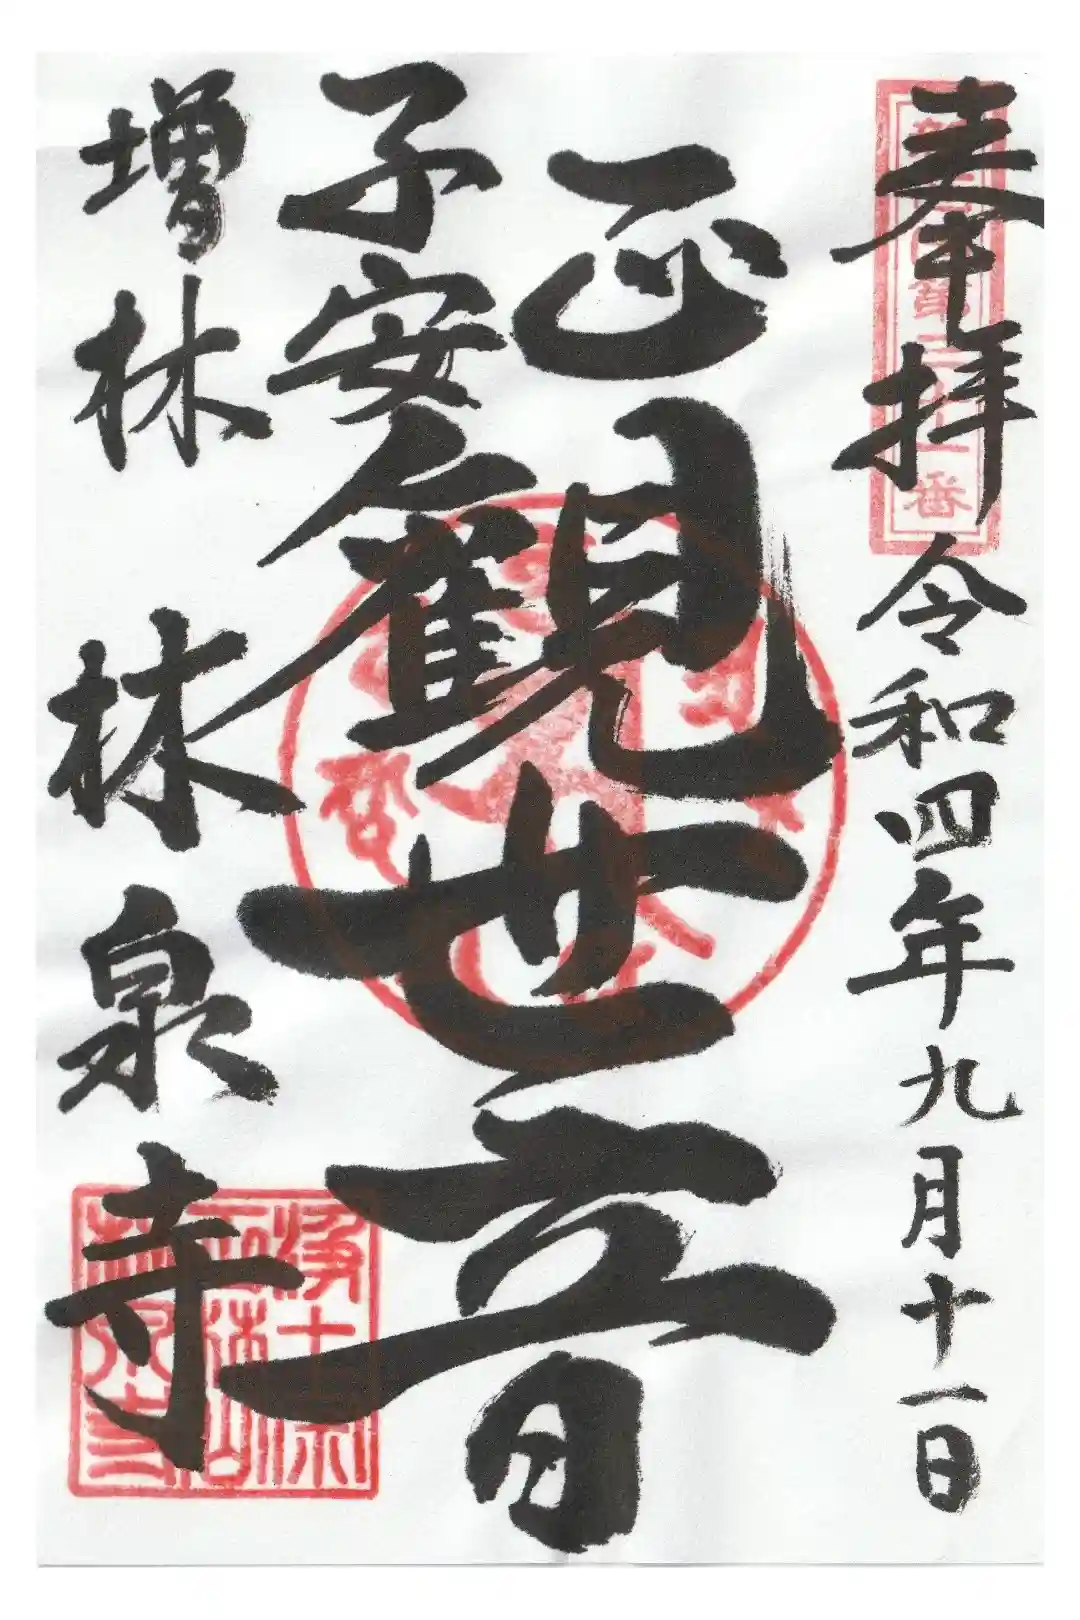 奉拝
令和四年九月十一日
正観世音
子安
増林
林泉寺
番